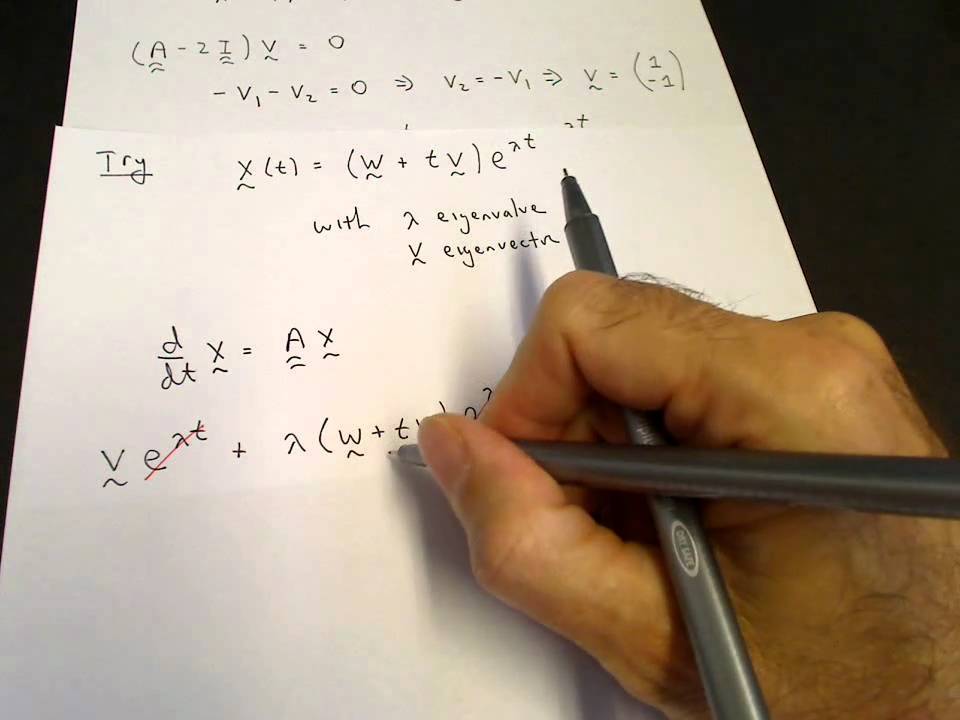 (A - 2 I) v = 0
- v₁ - v₂ = 0 ⇒ v₂ = -v₁ ⇒ v = (1 -1)
Try x(t) = (w + t v) e^λt
with λ eigenvalue
v eigenvector
d/dt x = A x
v e^λt + λ (w + t
DRY SAFE